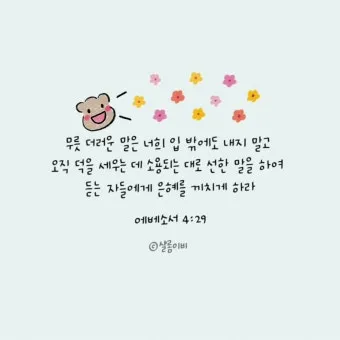 무릇 더러운 말은 너희 입 밖에도 내지 말고
오직 덕을 세우는 데 소용되는 대로 선한 말을 하여
듣는 자들에게 은혜를 끼치게 하라
에베소서 4:29
©샬롬이비